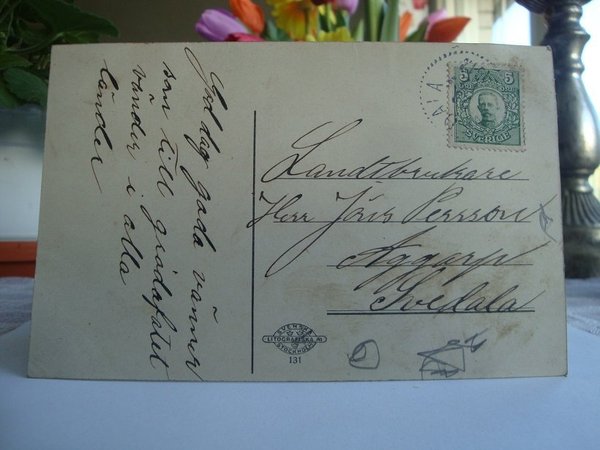 God dag goda vänner
som till grisdafatet
vänder i alla
länder
5 5
SVERIGE
Landtbrukare
Herr Jöns Persson
Aggarp
Svedala
SVENSKA
LITOGRAFISKA AB
STOCKHOLM
131